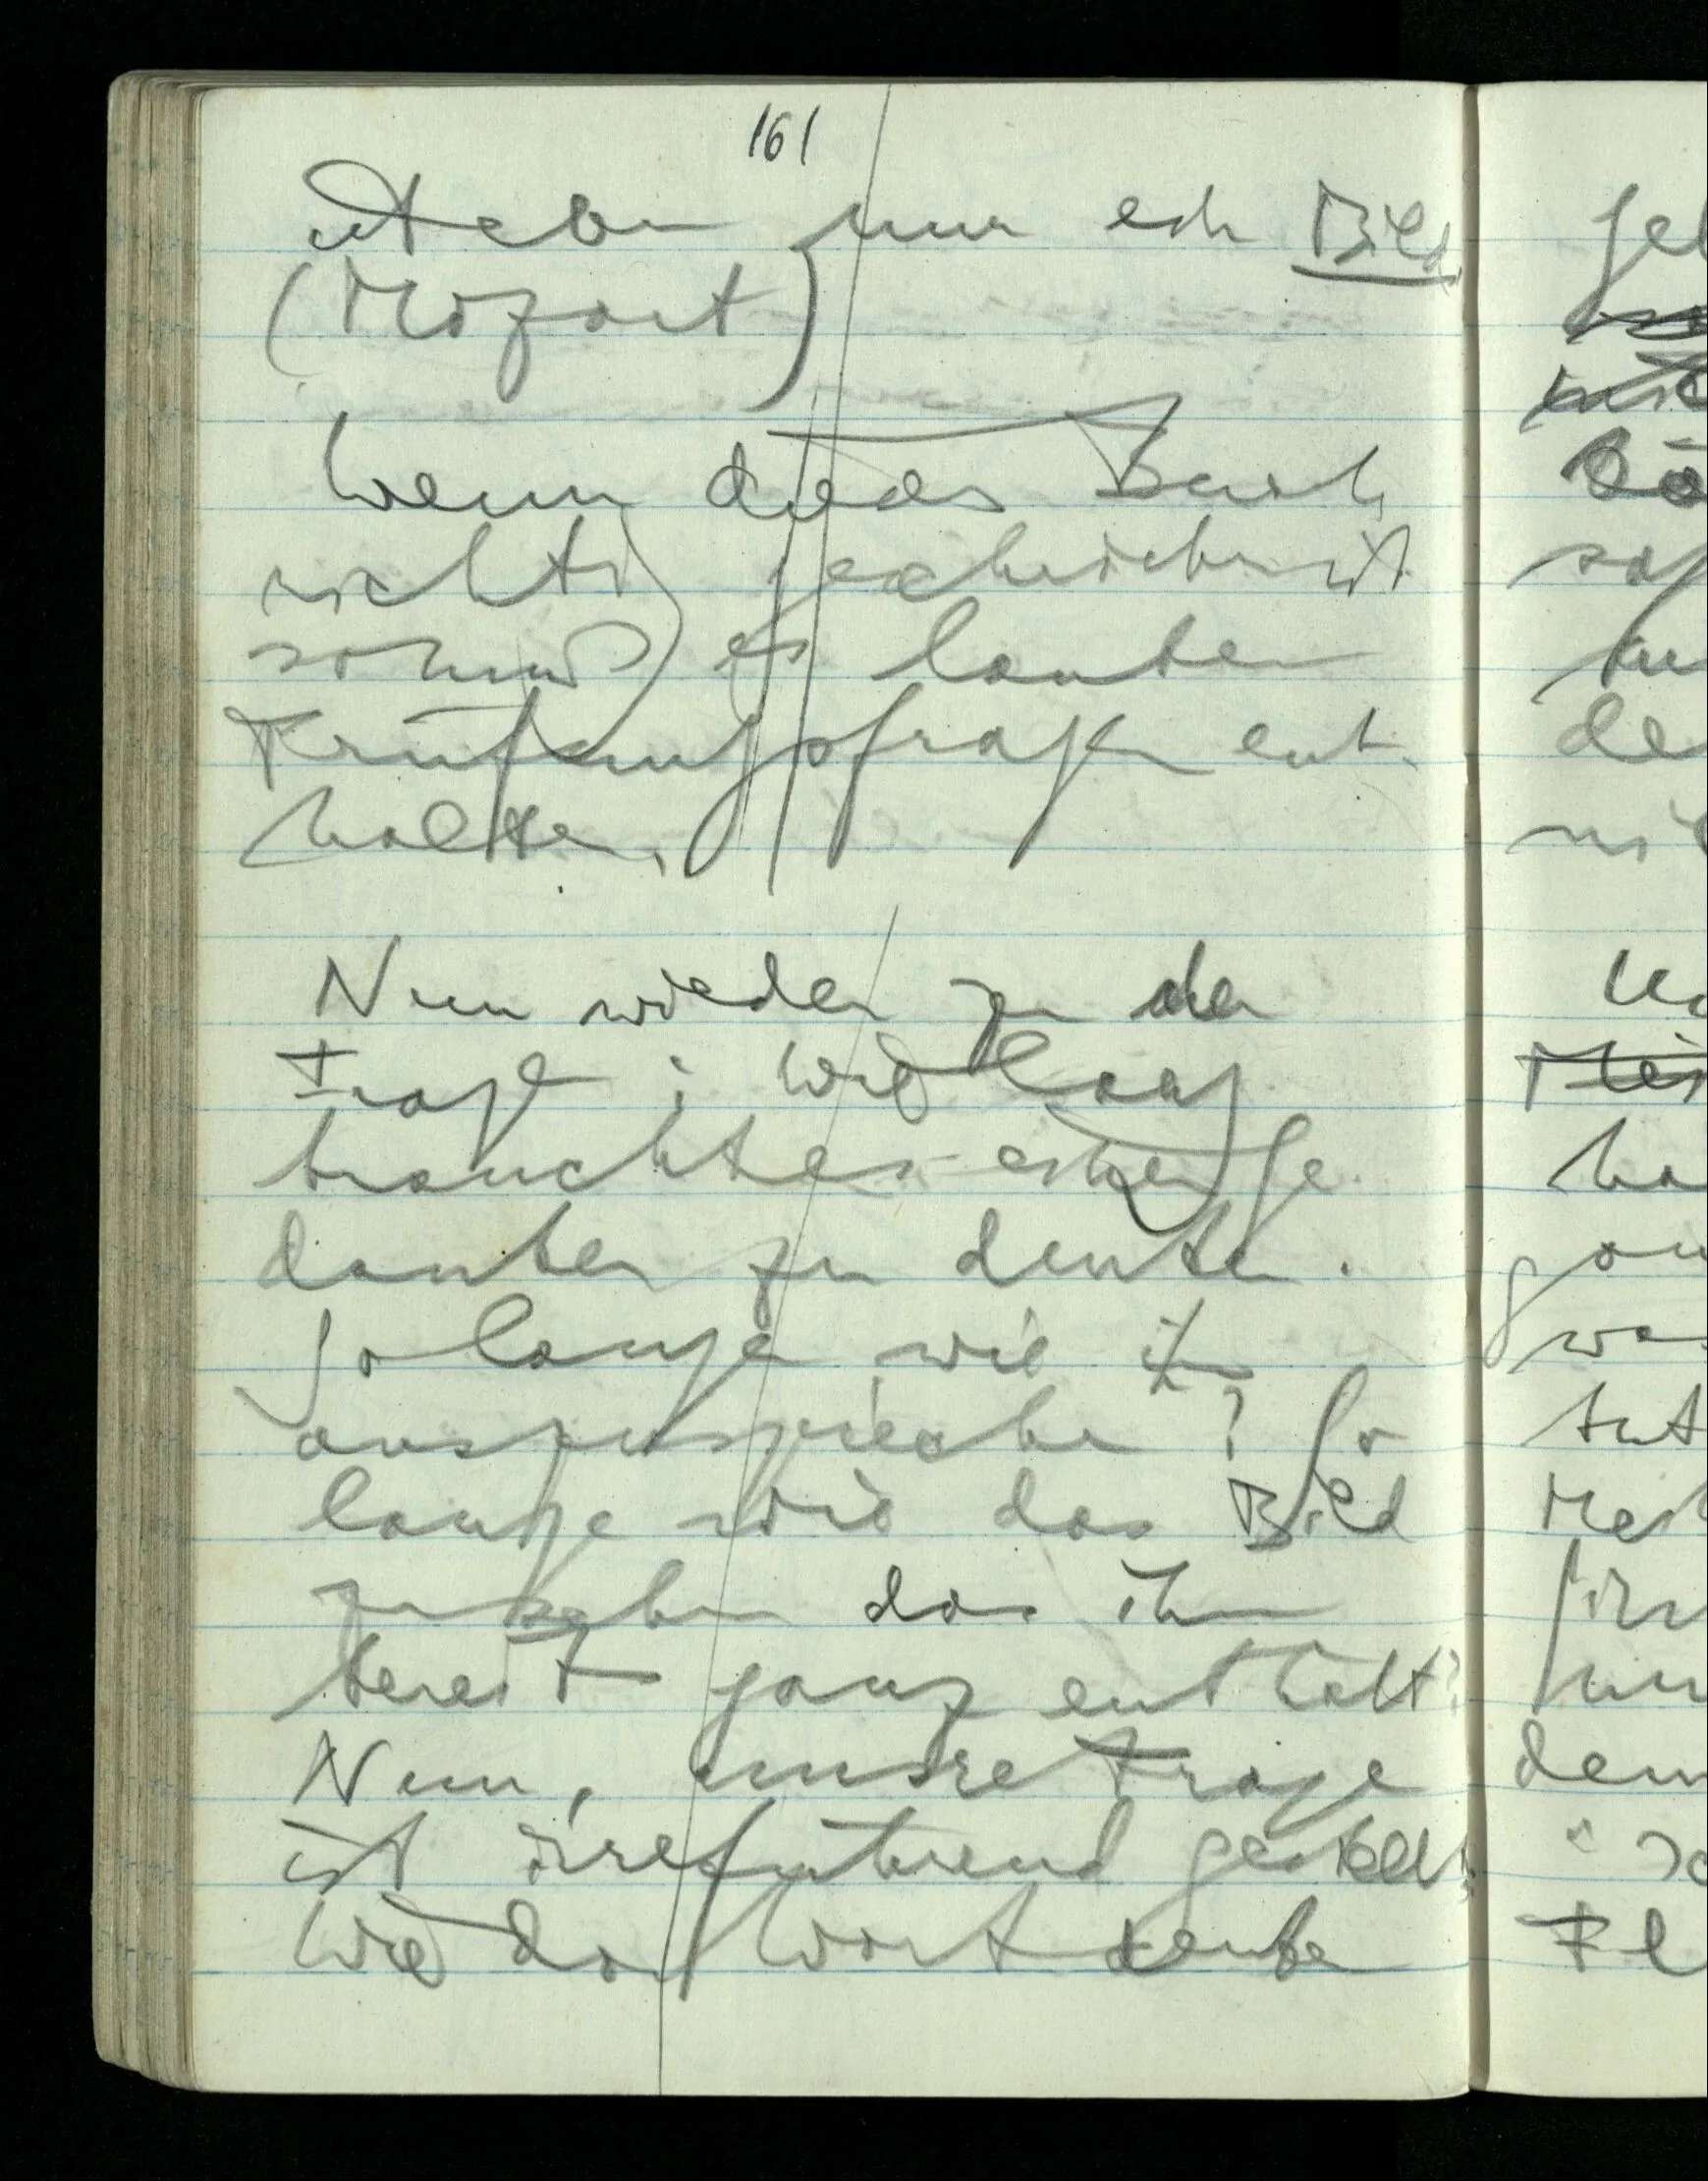 161
eben nur ein Bild
(Mozart)
Wenn dieses Buch
richtig geschrieben ist
so muß es lauter
Prüfungsfragen ent-
halten.
Nun wieder zu der
Frage: Wie lang
braucht es einen Ge-
danken zu denken.
So lange wie ihn
auszusprechen? So
lange wie das Bild
zu sehen das ihn
bereits ganz enthält?
Nun, unsre Frage
ist irreführend gestellt,
wie das Wort